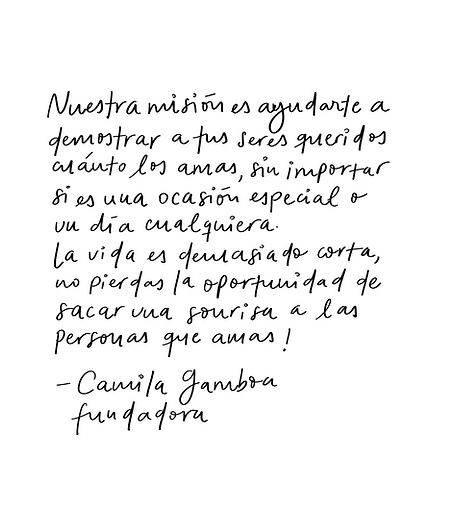 Nuestra misión es ayudarte a
demostrar a tus seres queridos
cuánto los amas, sin importar
si es una ocasión especial o
un día cualquiera.
La vida es demasiado corta,
no pierdas la oportunidad de
sacar una sonrisa a las
personas que amas!
- Camila Gamboa
fundadora